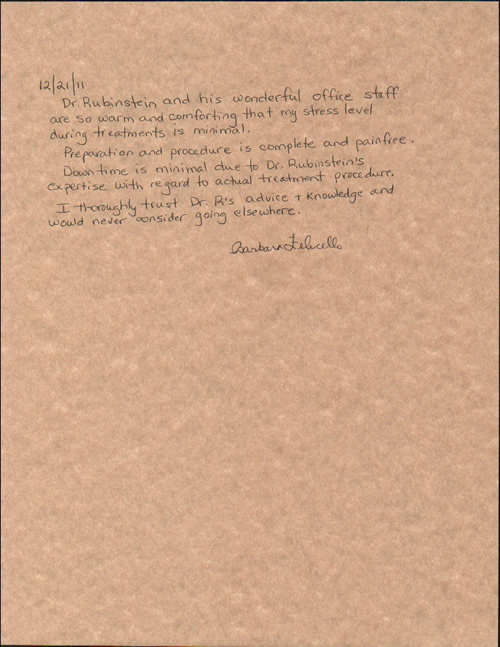 12/21/11
Dr. Rubinstein and his wonderful office staff
are so warm and comforting that my stress level
during treatments is minimal.
Preparation and procedure is complete and painfree.
Down time is minimal due to Dr. Rubinstein's
expertise with regard to actual treatment procedure.
I thoroughly trust Dr R's advice + knowledge and
would never consider going elsewhere.
Barbara Felicello